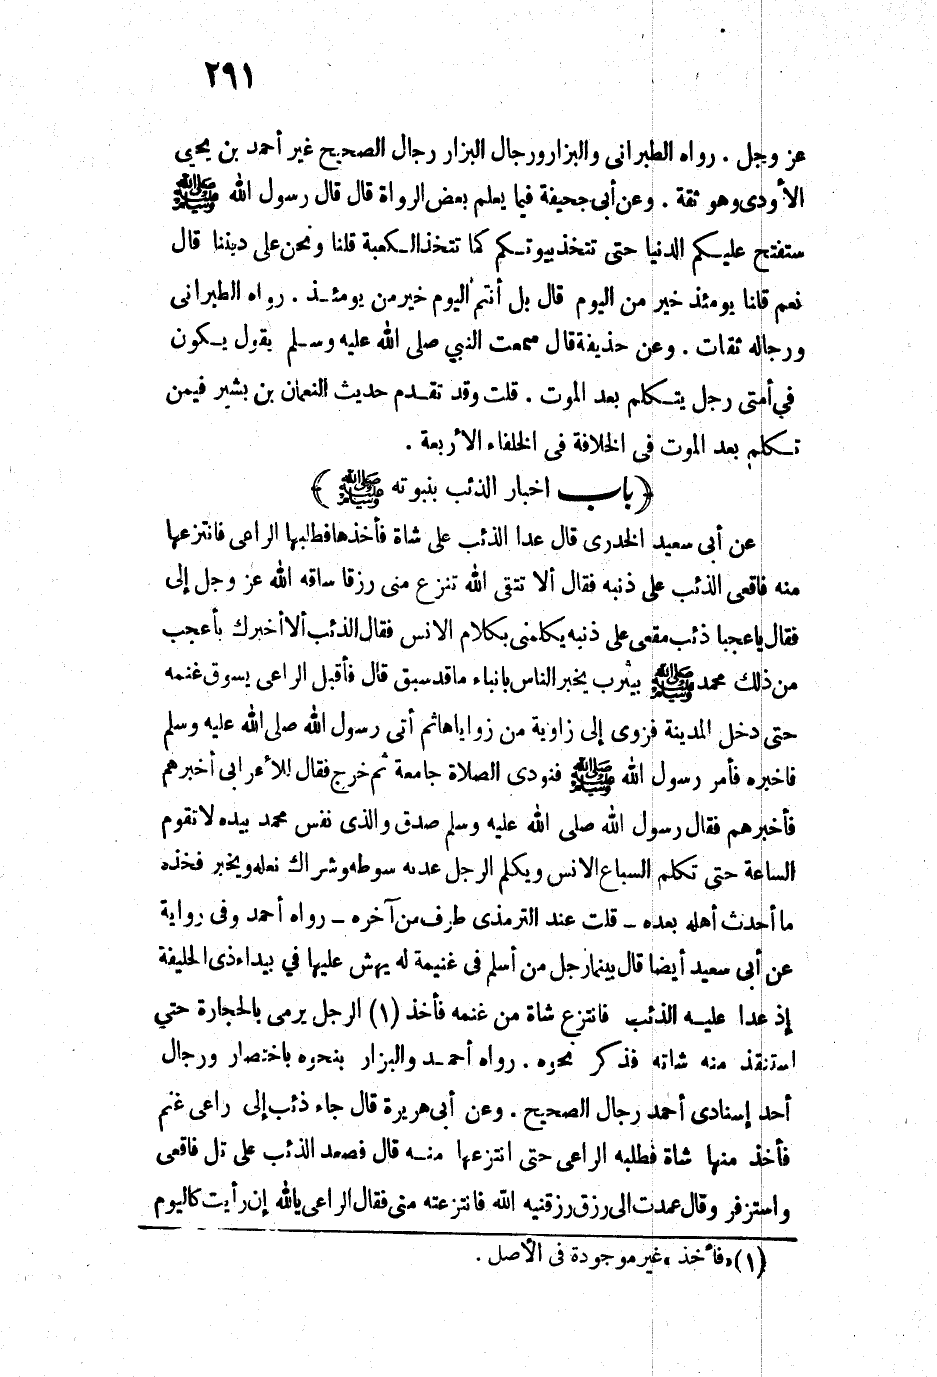 ٢٩١
عز وجل . رواه الطبرانى والبزار ورجال البزار رجال الصحيح غير أحمد بن يحيى
الأودى وهو ثقة . وعن أبى جحيفة فيما يعلم بعض الرواة قال قال رسول الله ﷺ
ستفتح عليكم الدنيا حتى تتخذ بيوتكم كما تتخذ الكعبة قلنا ونحن على ديننا قال
نعم قلنا يومئذ خير من اليوم قال بل أنتم اليوم خير من يومئذ . رواه الطبرانى
ورجاله ثقات . وعن حذيفة قال سمعت النبي صلى الله عليه وسلم يقول يكون
في أمتى رجل يتكلم بعد الموت . قلت وقد تقدم حديث النعمان بن بشير فيمن
تكلم بعد الموت فى الخلافة فى الخلفاء الأربعة .
﴿باب اخبار الذئب بنبوته ﷺ﴾
عن أبى سعيد الخدرى قال عدا الذئب على شاة فأخذها فطلبها الراعى فانتزعها
منه فاقعى الذئب على ذنبه فقال ألا تتقى الله تنزع منى رزقا ساقه الله عز وجل إلى
فقال ياعجبا ذئب مقعى على ذنبه يكلمنى بكلام الانس فقال الذئب ألا أخبرك بأعجب
من ذلك محمد ﷺ بيثرب يخبر الناس بانباء ما قد سبق قال فأقبل الراعى يسوق غنمه
حتى دخل المدينة فزوى إلى زاوية من زواياها ثم أتى رسول الله صلى الله عليه وسلم
فاخبره فأمر رسول الله ﷺ فنودى الصلاة جامعة ثم خرج فقال للأعرابى أخبرهم
فأخبرهم فقال رسول الله صلى الله عليه وسلم صدق والذى نفس محمد بيده لا تقوم
الساعة حتى تكلم السباع الانس ويكلم الرجل عذبه سوطه وشراك نعله ويخبر فخذه
ما أحدث أهله بعده ـ قلت عند الترمذى طرف من آخره ـ رواه أحمد وفى رواية
عن أبى سعيد أيضا قال بينما رجل من أسلم فى غنيمة له يهش عليها في بيداء ذى الحليفة
إذ عدا عليه الذئب فانتزع شاة من غنمه فأخذ (١) الرجل يرمى بالحجارة حتي
استنقذ منه شاته فذكر نحوه . رواه أحمد والبزار بنحوه باختصار ورجال
أحد إسنادى أحمد رجال الصحيح . وعن أبى هريرة قال جاء ذئب إلى راعى غنم
فأخذ منها شاة فطلبه الراعى حتى انتزعها منه قال فصعد الذئب على تل فاقعى
واستزفر وقال عمدت الى رزق رزقنيه الله فانتزعته منى فقال الراعى يالله إن رأيت كاليوم
(١) «فأخذ» غير موجودة فى الأصل .